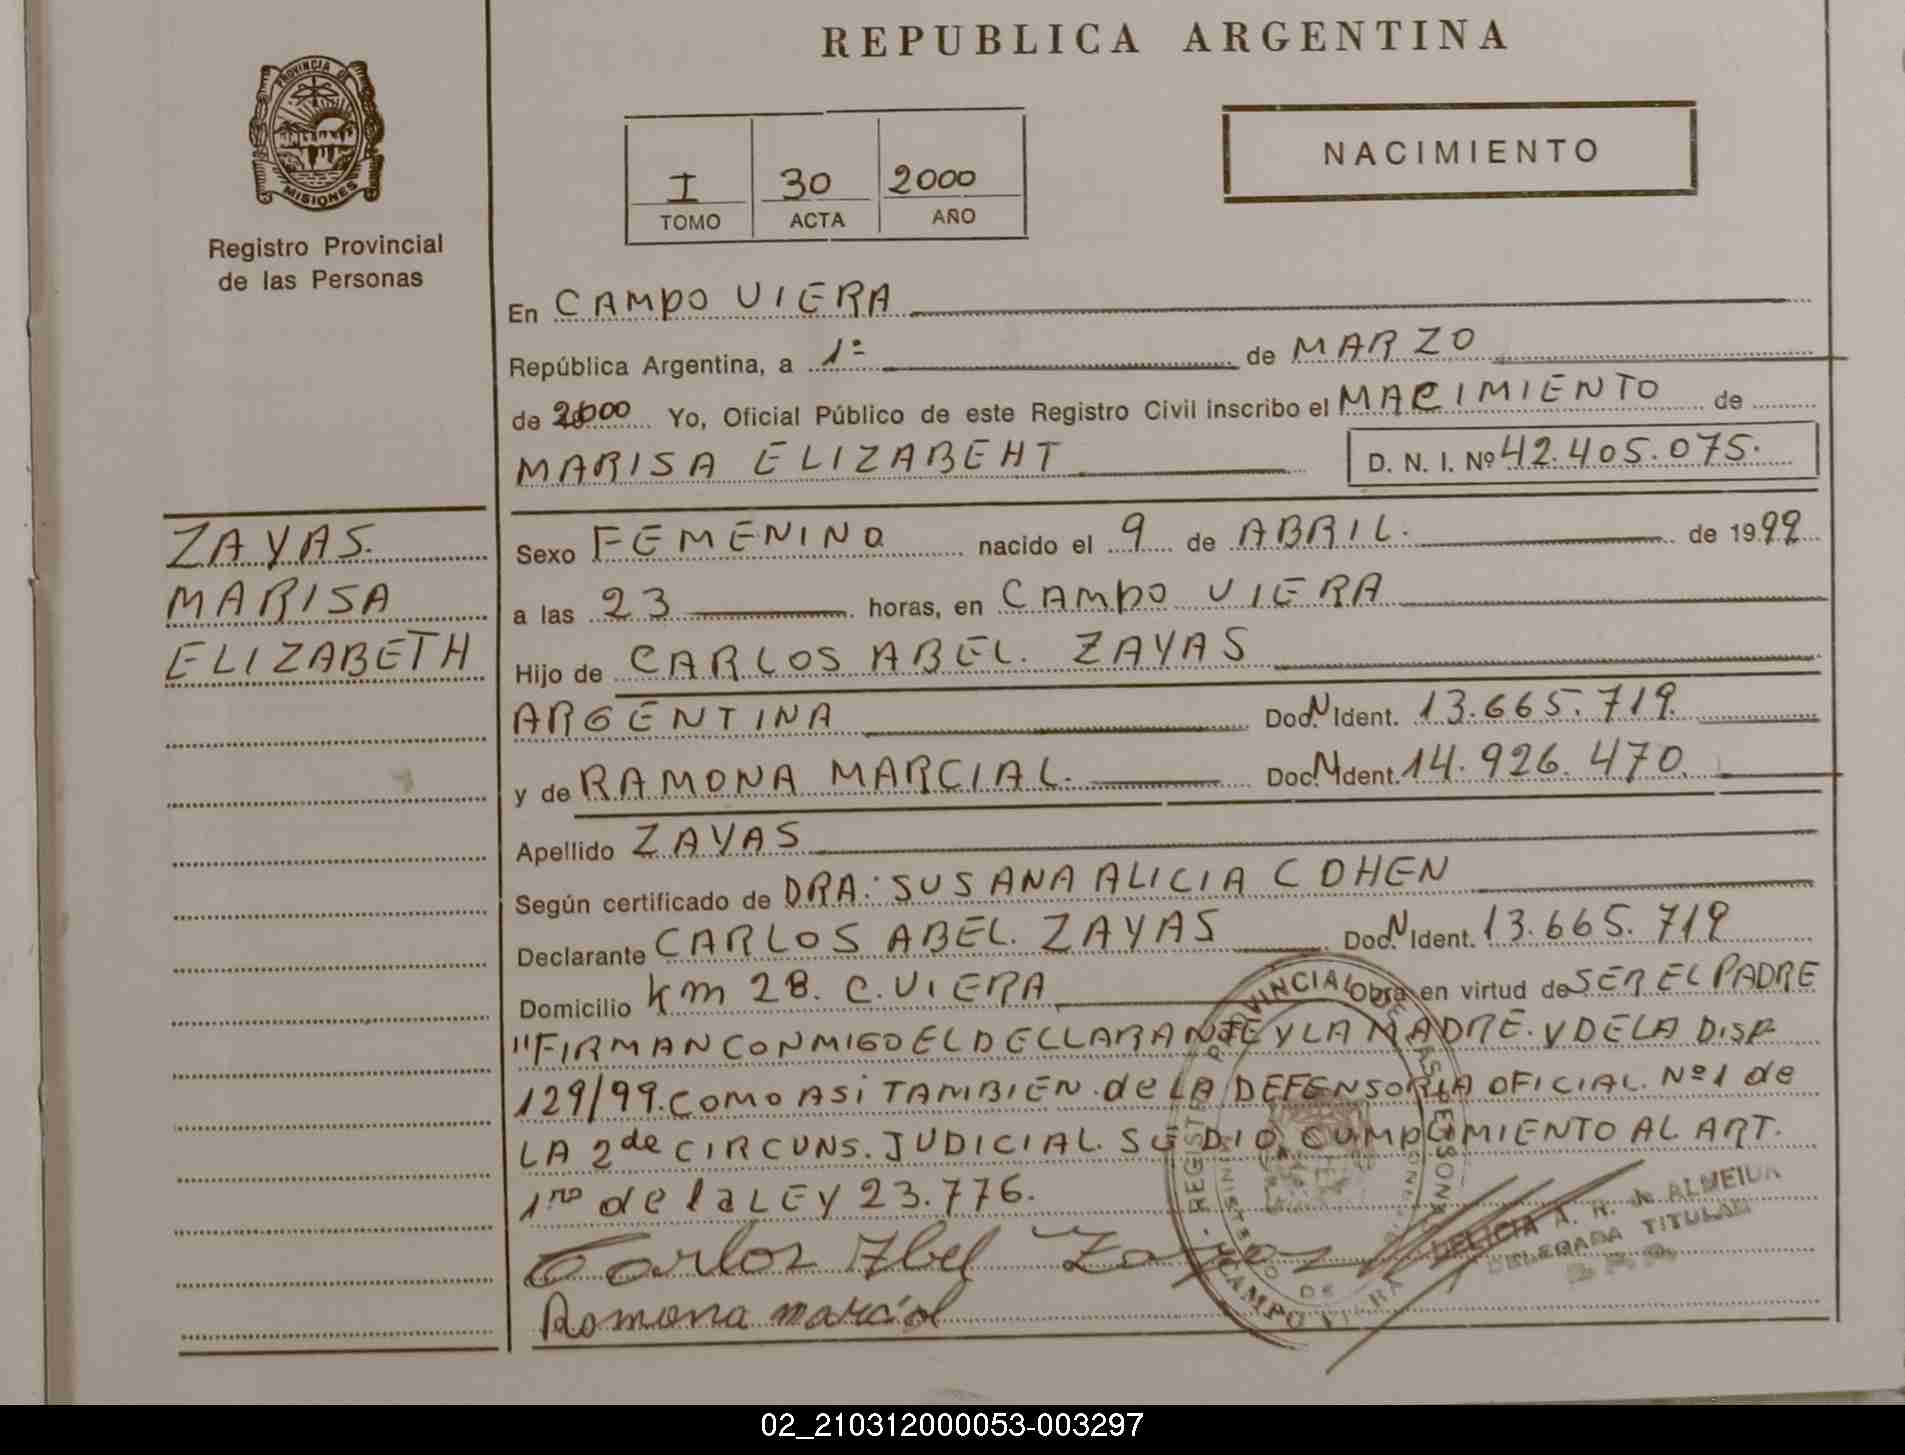 REPUBLICA ARGENTINA
PROVINCIA DE
MISIONES
Registro Provincial
de las Personas
I 30 2000
TOMO ACTA AÑO
NACIMIENTO
En CAMPO VIERA
República Argentina, a 1º de MARZO
de 2000 Yo, Oficial Público de este Registro Civil inscribo el NACIMIENTO de
MARISA ELIZABEHT D. N. I. Nº 42.405.075.
ZAYAS.
MARISA
ELIZABETH
Sexo FEMENINO nacido el 9 de ABRIL. de 1999
a las 23 horas, en CAMPO VIERA
Hijo de CARLOS ABEL. ZAYAS
ARGENTINA Doc. N Ident. 13.665.719.
y de RAMONA MARCIAL. Doc. N Ident. 14.926.470.
Apellido ZAYAS
Según certificado de DRA: SUSANA ALICIA COHEN
Declarante CARLOS ABEL. ZAYAS Doc. N Ident. 13.665.719
Domicilio Km 28. C. VIERA Obra en virtud de SER EL PADRE
"FIRMAN CONMIGO EL DECLLARANTE Y LA MADRE. Y DE LA DISP
129/99. COMO ASI TAMBIEN de LA DEFENSORIA OFICIAL. Nº 1 de
LA 2de CIRCUNS. JUDICIAL. SE DIO CUMPLIMIENTO AL ART.
1ro de la LEY 23.776.
Carlos Abel Zayas
Ramona Marcial
REGISTRO PROVINCIAL DE LAS PERSONAS
CAMPO VIERA
DELICIA A. R. de ALMEIDA
DELEGADA TITULAR
02_210312000053-003297